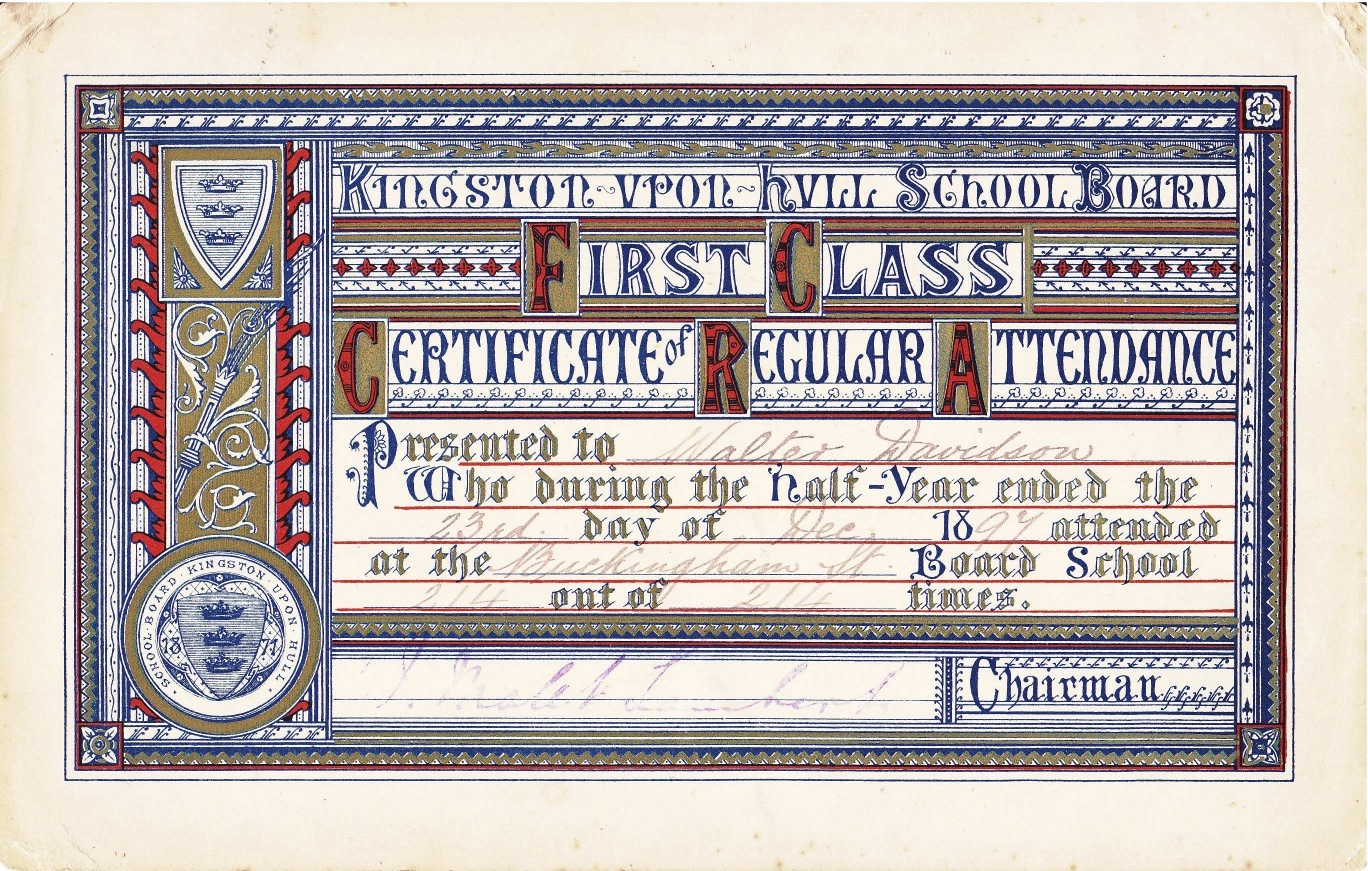 KINGSTON-UPON-HULL SCHOOL BOARD
FIRST CLASS
CERTIFICATE of REGULAR ATTENDANCE
Presented to Walter Davidson
Who during the Half-Year ended the
23rd. day of Dec. 1897 attended
at the Buckingham St. Board School
214 out of 214 times.
J. Malet Lambert. Chairman
SCHOOL·BOARD·KINGSTON·UPON·HULL·
1871